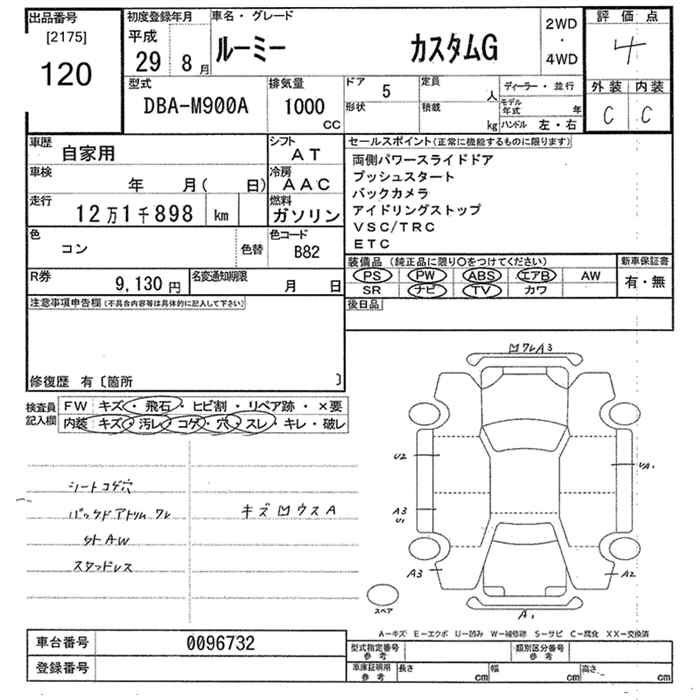 出品番号
[2175]
120
初度登録年月
平成
29 8月
車名・グレード
ルーミー カスタムG
2WD
・
4WD
評価点
4
外装 内装
C C
型式
DBA-M900A
排気量
1000
CC
ドア 5
形状
定員 人
積載 kg
ディーラー・並行
モデル年式 年
ハンドル 左・右
車歴 自家用
シフト AT
車検 年 月( 日)
冷房 AAC
走行 12万1千898 km
燃料 ガソリン
色 コン 色替
色コード B82
R券 9,130円
名変通知期限 月 日
セールスポイント(正常に機能するものに限ります)
両側パワースライドドア
プッシュスタート
バックカメラ
アイドリングストップ
VSC/TRC
ETC
装備品 (純正品に限り○をつけてください)
PS PW ABS エアB AW
SR ナビ TV カワ
新車保証書
有・無
後日品
注意事項申告欄(不具合内容等は具体的に記入して下さい)
修復歴 有〔箇所 〕
検査員記入欄
FW キズ・飛石・ヒビ割・リペア跡・×要
内装 キズ・汚レ・コゲ・穴・スレ・キレ・破レ
シートコゲ穴
バックドアトリムワレ
外AW
スタッドレス
キズ凹ウスA
凹ワレA3
U2
A3
U1
UA1
A3
A2
A1
スペア
A―キズ E―エクボ U―凹み W―補修跡 S―サビ C―腐化 XX―交換済
車台番号 0096732
登録番号
型式指定番号 参考
類別区分番号 参考
車庫証明用 参考
長さ cm
幅 cm
高さ cm